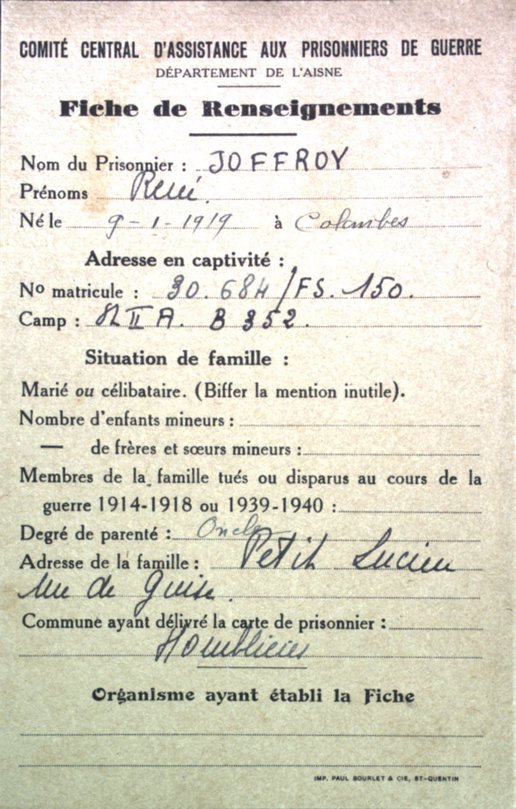 COMITÉ CENTRAL D'ASSISTANCE AUX PRISONNIERS DE GUERRE
DÉPARTEMENT DE L'AISNE
Fiche de Renseignements
Nom du Prisonnier : JOFFROY
Prénoms René
Né le 9-1-1919 à Colombes
Adresse en captivité :
No matricule : 30.684/FS.150.
Camp : II A. B 352.
Situation de famille :
Marié ou célibataire. (Biffer la mention inutile).
Nombre d'enfants mineurs :
— de frères et sœurs mineurs :
Membres de la famille tués ou disparus au cours de la
guerre 1914-1918 ou 1939-1940 :
Degré de parenté : Oncle
Adresse de la famille : Petit Lucien
rue de Guise.
Commune ayant délivré la carte de prisonnier :
Homblières
Organisme ayant établi la Fiche
IMP. PAUL BOURLET & CIE, ST-QUENTIN